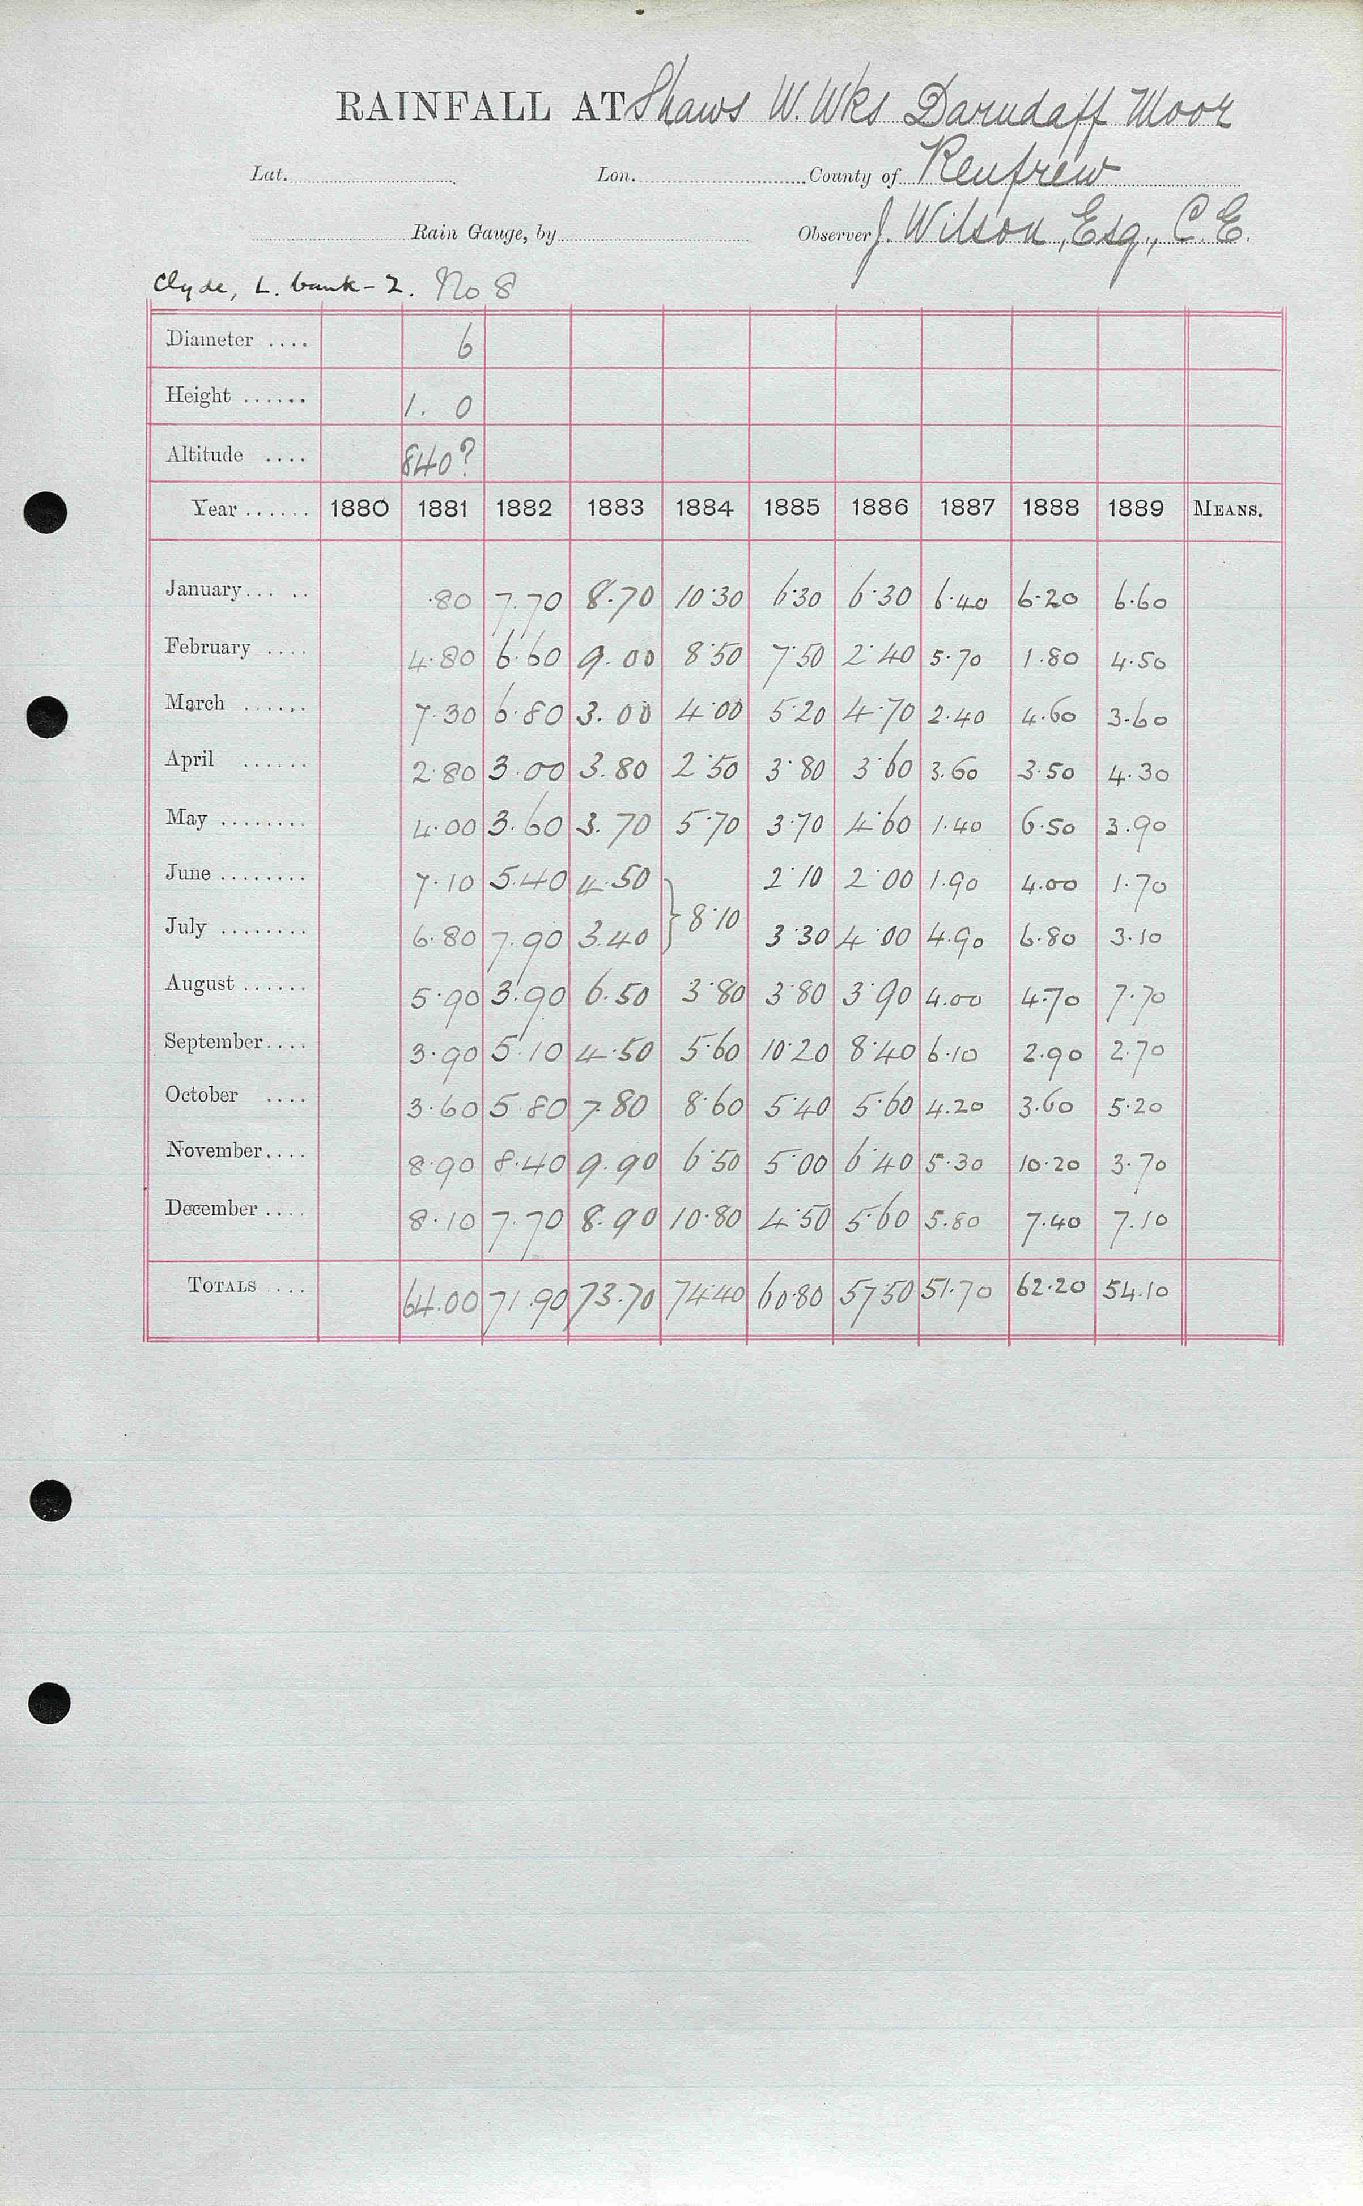 RAINFALL AT Shaws W. Wks Darndaff Moor
Lat. Lon. County of Renfrew
Rain Gauge, by Observer J. Wilson, Esq., C.E.
Clyde, L. bank - 2. No 8
Diameter .... 6
Height ...... 1. 0
Altitude .... 840?
Year ...... 1880 1881 1882 1883 1884 1885 1886 1887 1888 1889 MEANS.
January... .. .80 7.70 8.70 10.30 6.30 6.30 6.40 6.20 6.60
February .... 4.80 6.60 9.00 8.50 7.50 2.40 5.70 1.80 4.50
March ...... 7.30 6.80 3.00 4.00 5.20 4.70 2.40 4.60 3.60
April ...... 2.80 3.00 3.80 2.50 3.80 3.60 3.60 3.50 4.30
May ........ 4.00 3.60 3.70 5.70 3.70 4.60 1.40 6.50 3.90
June ........ 7.10 5.40 4.50 } 8.10 2.10 2.00 1.90 4.00 1.70
July ........ 6.80 7.90 3.40 3.30 4.00 4.90 6.80 3.10
August ...... 5.90 3.90 6.50 3.80 3.80 3.90 4.00 4.70 7.70
September.... 3.90 5.10 4.50 5.60 10.20 8.40 6.10 2.90 2.70
October .... 3.60 5.80 7.80 8.60 5.40 5.60 4.20 3.60 5.20
November.... 8.90 8.40 9.90 6.50 5.00 6.40 5.30 10.20 3.70
December .... 8.10 7.70 8.90 10.80 4.50 5.60 5.80 7.40 7.10
TOTALS .... 64.00 71.90 73.70 74.40 60.80 57.50 51.70 62.20 54.10